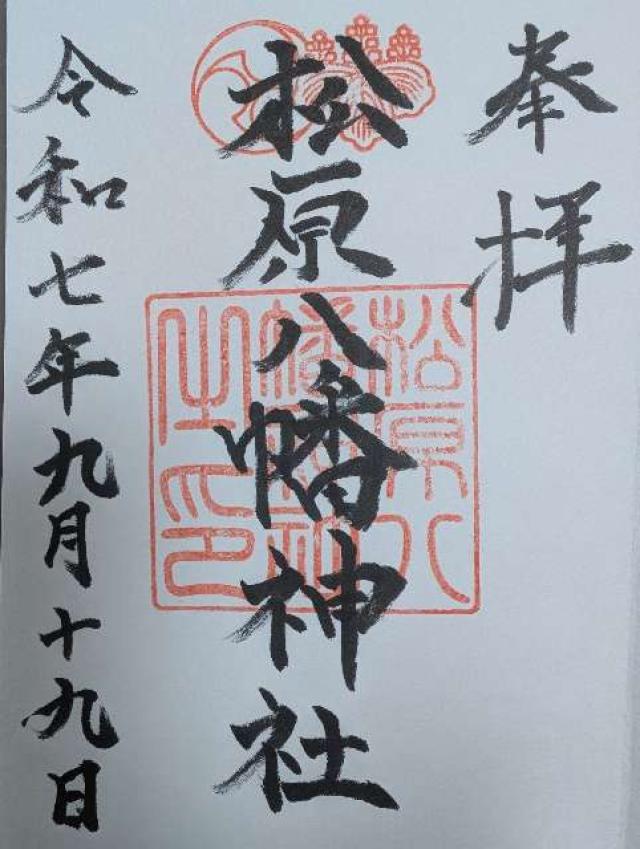 奉拝
松原八幡神社
松原八幡神社之印
令和七年九月十九日